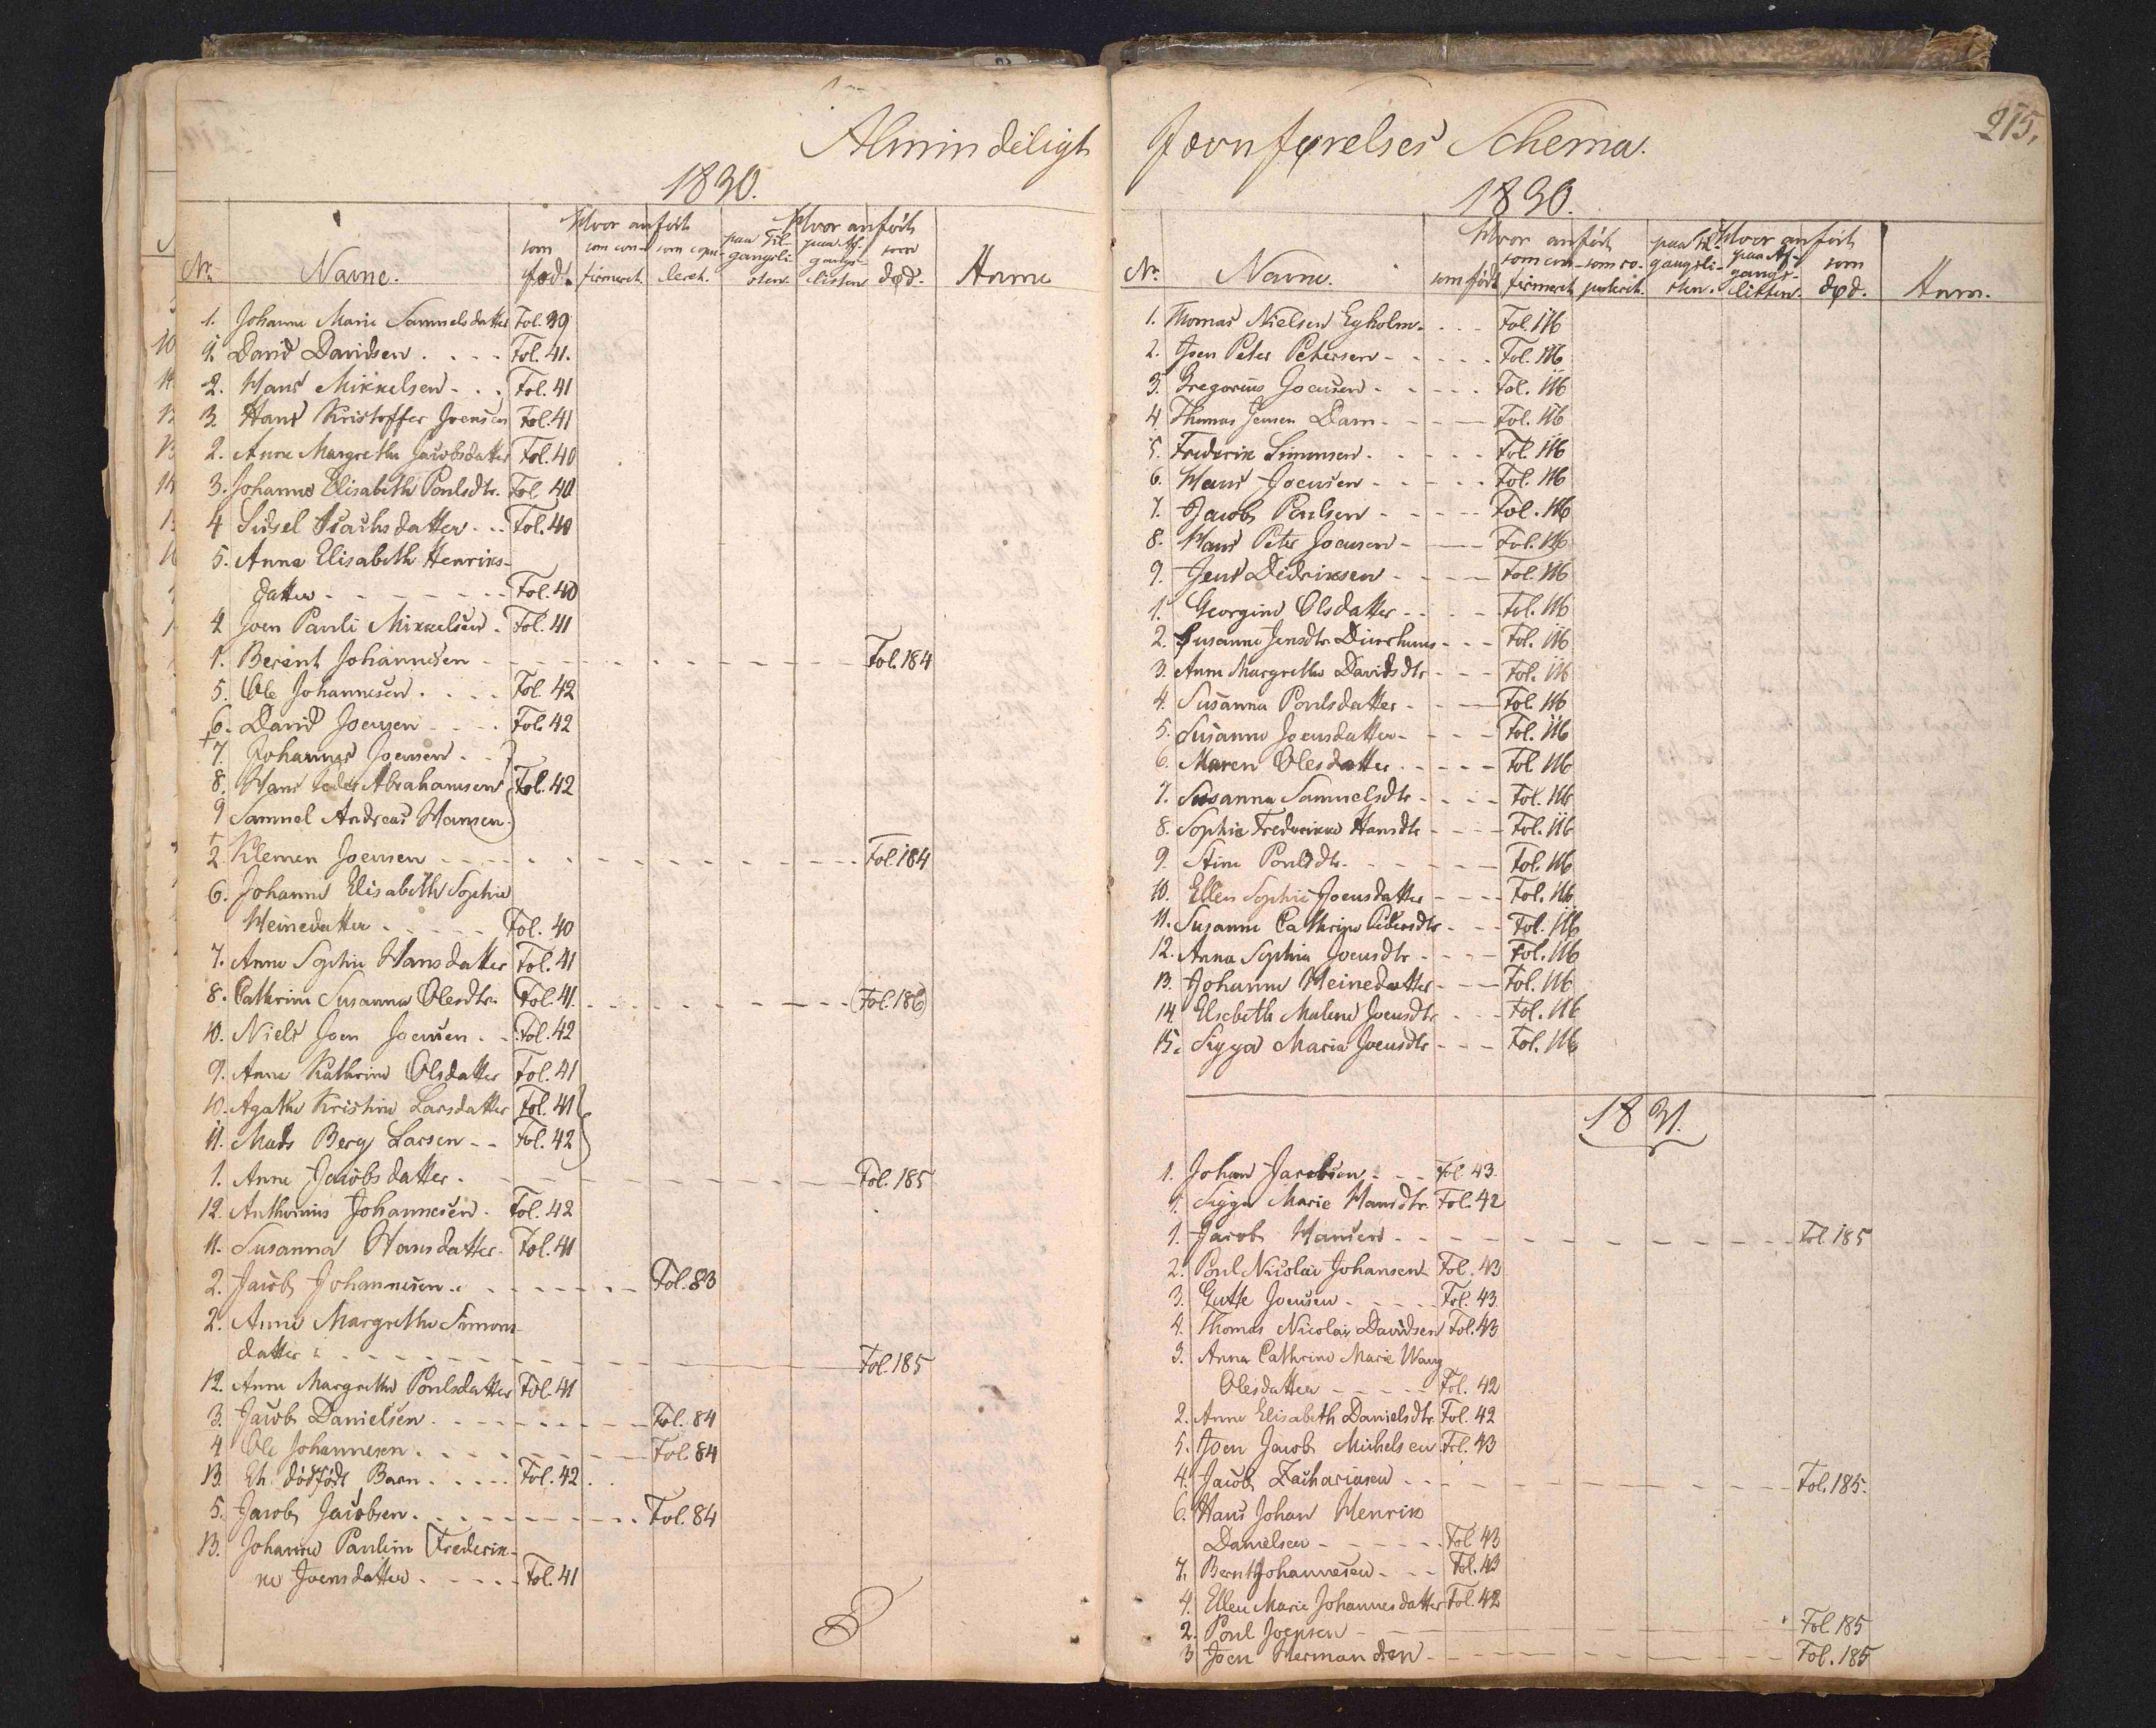 Almindeligt
1830.
Hvor anført
Hvor anført
som
som con-
som copu-
paa Til-
paa Af-
som
No
Navne.
fød.
firmeret.
leret.
gangsli-
sten.
gangs-
listen
død.
Anm
1. Johanne Marie Samuelsdatter Fol. 39
1. David Davidsen . . . . Fol. 41.
2. Hans Mikkelsen . . . Fol. 41
3. Hans Kristoffer Joensen Fol. 41
2. Anne Margrethe Jacobsdatter Fol. 40
3. Johanne Elisabeth Poulsdtr. Fol. 40
4 Sidsel Isachsdatter . . Fol. 40
5. Anna Elisabeth Henriks-
datter - - - - - - - Fol. 40
4 Joen Pauli Mikkelsen . Fol. 41
1. Berent Johannesen - - - - - - Fol. 184
5. Ole Johannesen . . . . Fol. 42
6. David Joensen - - - - Fol. 42
7. Johannes Joensen . .
8. Hans Peder Abrahamsen Fol. 42
9 Samuel Andreas Hansen.
2. Klemen Joensen - - - - - - Fol. 184
6. Johanne Elisabeth Sophie
Heinedatter . . . . . Fol. 40
7. Anne Sophie Hansdatter Fol. 41
8. Cathrine Susanne Olesdtr. Fol. 41. - - - - - (Fol. 186)
10. Niels Joen Joensen . . Fol. 42
9. Anne Kathrine Olsdatter Fol. 41
10. Agathe Kristine Larsdatter Fol. 41
11. Mads Berg Larsen - - Fol. 42
1. Anne Jacobsdatter . - - - - - Fol. 185
12. Anthonius Johannesen . Fol. 42
11. Susanna Hansdatter. Fol. 41
2. Jacob Johannesen . . . . . . Fol. 83
2. Anne Margrethe Simons-
datter . - - - - - - Fol. 185
12. Anne Margrethe Poulsdatter Fol. 41
3. Jacob Danielsen . - - - - - Fol. 84
4 Ole Johannesen . . - - - - Fol. 84
13. Et dødfødt Barn . . . . . Fol. 42 . .
5. Jacob Jacobsen . . . . . . Fol. 84
13. Johanne Pauline Frederik-
ne Joensdatter . - - - - Fol. 41
Jevnførelses Schema.
215.
1830.
Hvor anført
Hvor anført
som født
som con-
firmeret
som co-
puleret.
paa Til-
gangsli-
sten.
paa Af-
gangs-
listen.
som
død.
No
Navne.
Anm.
1. Thomas Nielsen Egholm. . - - Fol. 116
2. Joen Peter Petersen - - - - Fol. 116
3. Gregorius Joensen . - - - - Fol. 116
4. Thomas Jensen Dam - - - - Fol. 116
5. Frederik Simonsen . - - - - Fol. 116
6. Hans Joensen - - - - - Fol. 116
7. Jacob Poulsen - - - - - Fol. 116
8. Hans Peter Joensen - - - - Fol. 116
9. Jens Didriksen - - - - Fol. 116
1. Georgine Olsdatter - - - - Fol. 116
2. Susanne Jensdtr. - - - Fol. 116
3. Anne Margrethe Davidsdtr - - - Fol. 116
4. Susanna Poulsdatter - - - Fol. 116
5. Susanne Joensdatter - - - - Fol. 116
6. Maren Olesdatter . - - - - Fol. 116
7. Susanna Samuelsdtr - - - - Fol. 116
8. Sophia Frederikke Hansdtr - - - - Fol. 116
9. Stine Poulsdtr. - - - - - Fol. 116
10. Ellen Sophie Joensdatter - - - - Fol. 116
11. Susanne Cathrine Pedersdtr - - - Fol. 116
12. Anna Sophia Joensdtr - - - - Fol. 116
13. Johanne Heinedatter - - - Fol. 116
14. Elsebeth Malene Joensdtr - - - Fol. 116
15. Sigga Maria Joensdtr - - - Fol. 116
1831.
1. Johan Jacobsen - - - Fol. 43.
1. Sigga Marie Hansdtr. Fol. 42
1. Jacob Hansen - - - - - - Fol. 185
2. Poul Nicolai Johansen Fol. 43
3. Gutte Joensen . - - - - Fol. 43.
4. Thomas Nicolai Davidsen Fol. 43
3. Anna Cathrine Marie Wang
Olesdatter - - - - - Fol. 42
2. Anne Elisabeth Danielsdtr. Fol. 42
5. Joen Jacob Michelsen Fol. 43
4. Jacob Zachariasen - - - - - - Fol. 185.
6. Hans Johan Henrik
Danielsen - - - - - - Fol. 43
7. Bernt Johannesen - - - Fol. 43
4. Ellen Marie Johannesdatter Fol. 42
2. Poul Joensen - - - - - - Fol. 185
3 Joen Hermansen - - - - - - Fol. 185